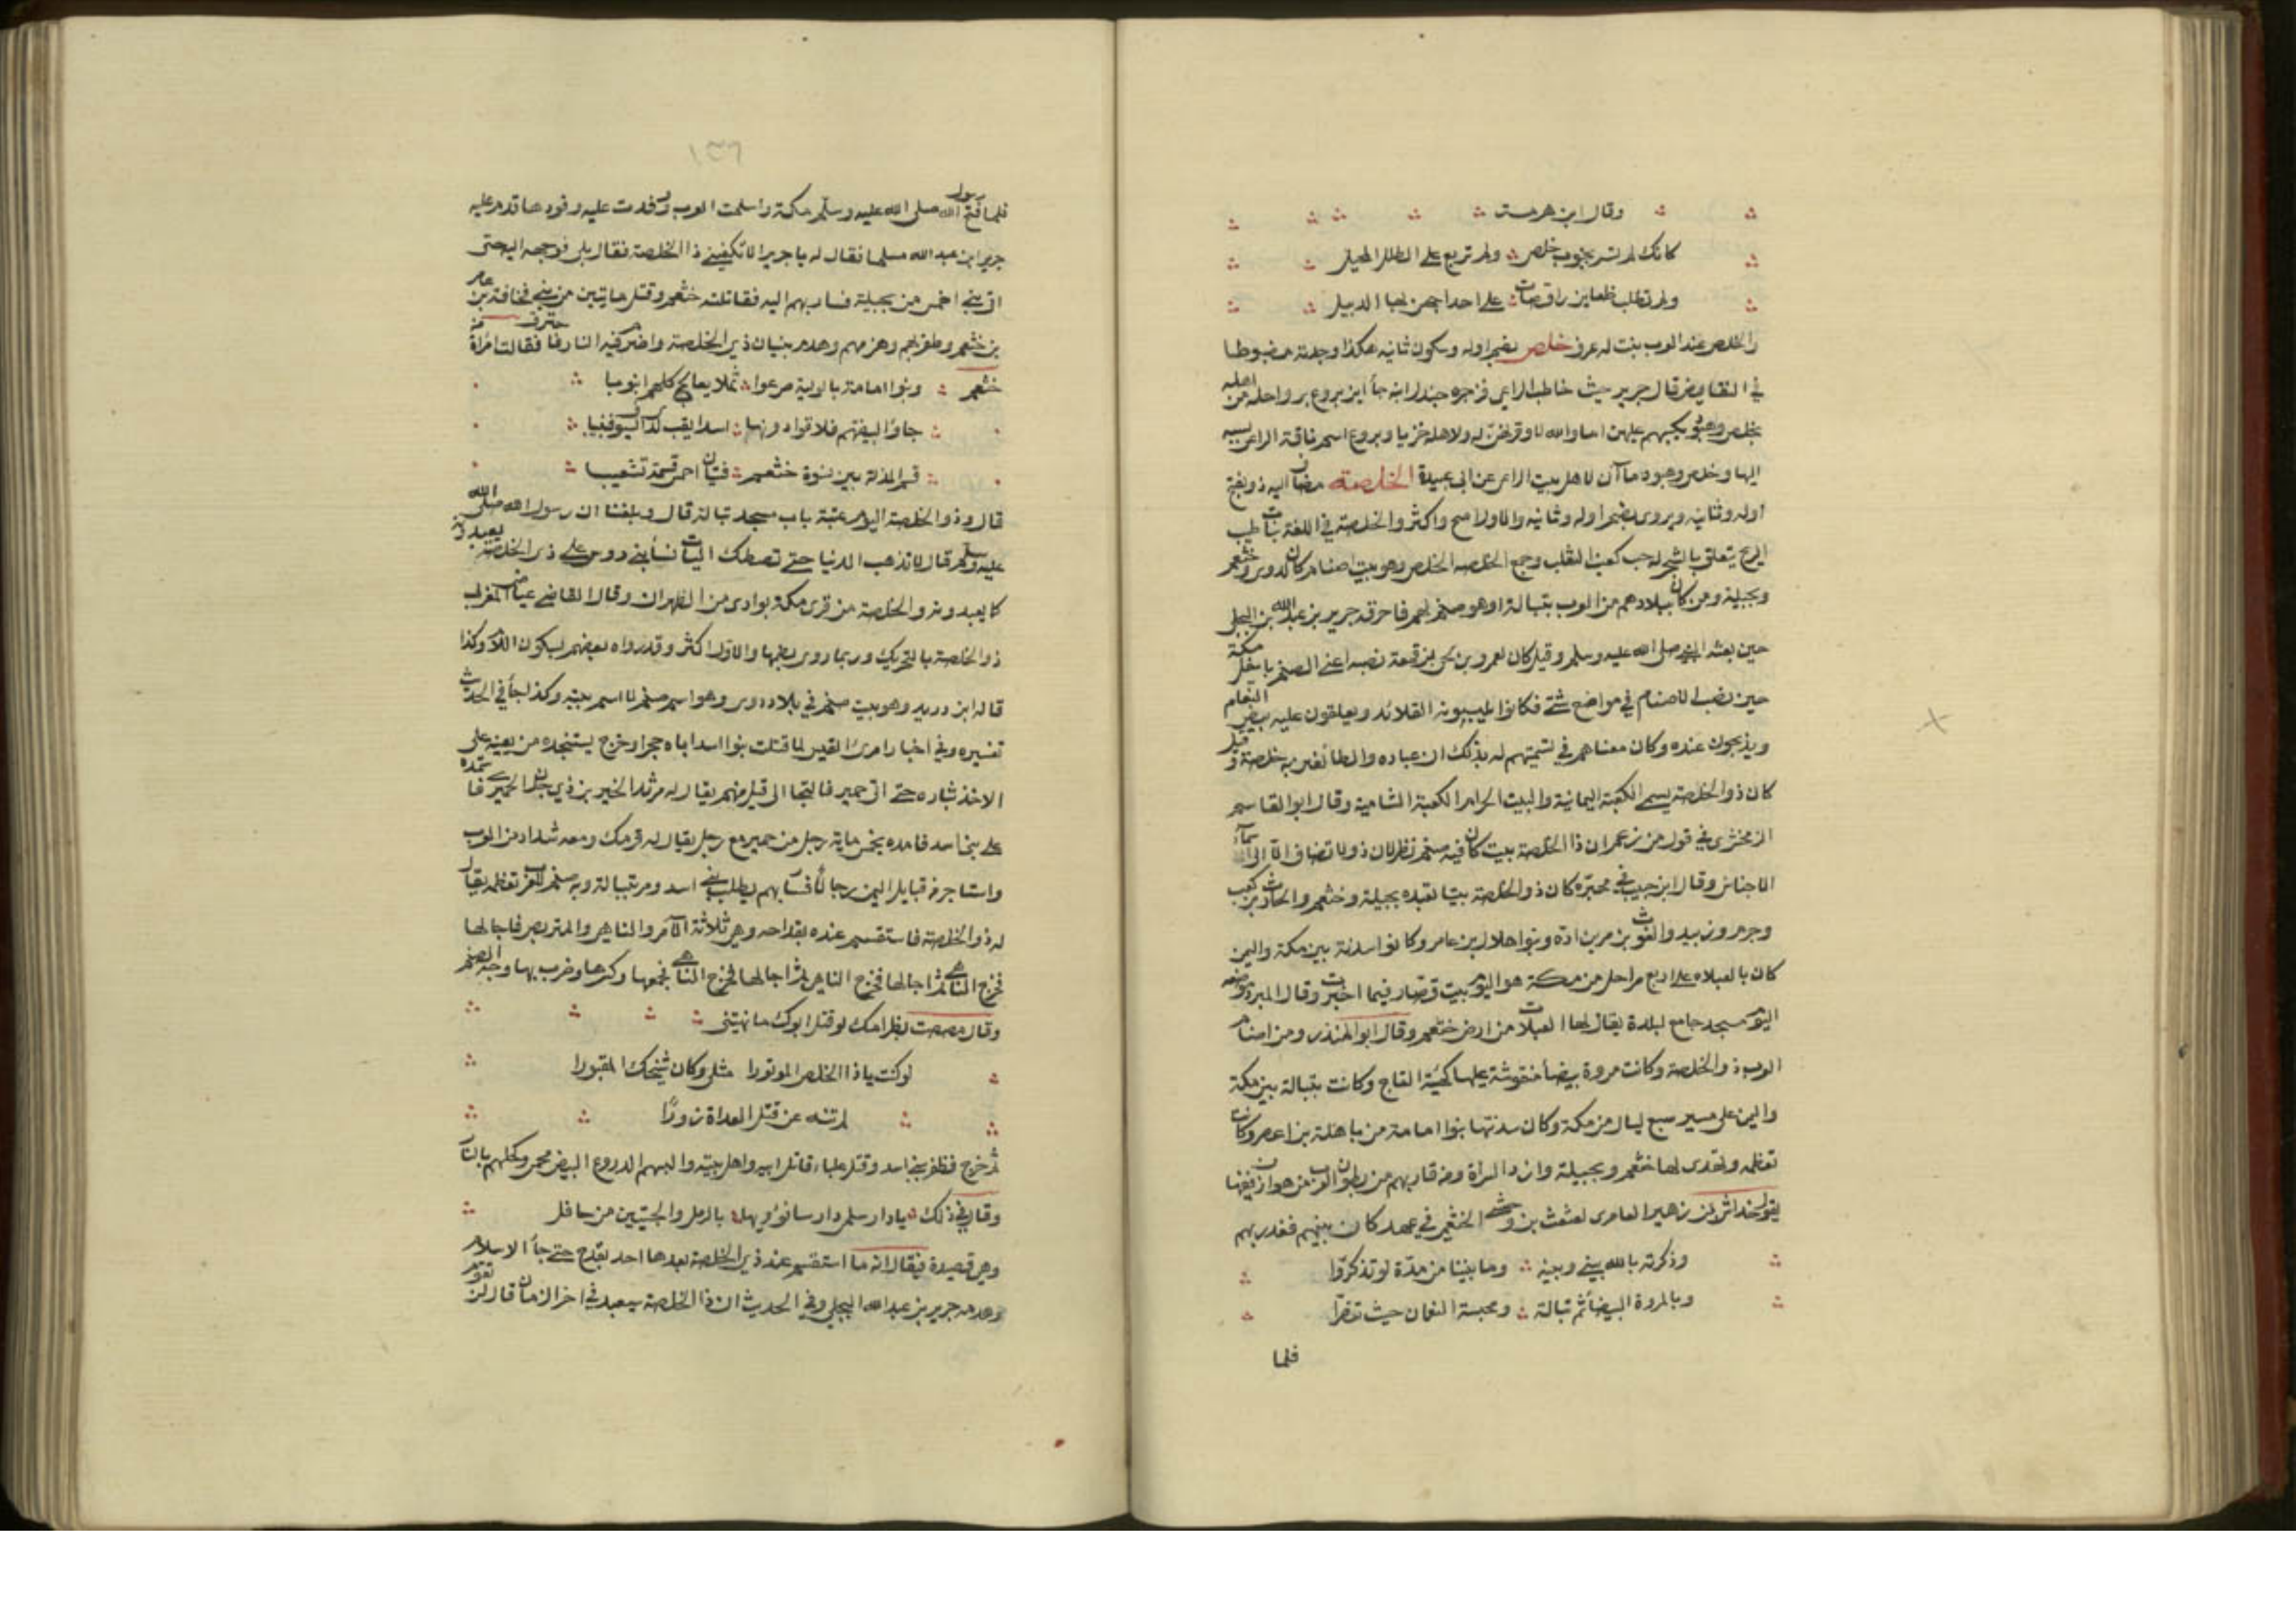 وقال ابن هرمة
كانك لم تسر بجنوب خلص ولم تربع على الطلل المحيل
ولم تطلب ظعاين راقصات على احداجهن مها الدبيل
والخلص عند العرب نبت له عرف خلص بضم اوله وسكون ثانيه هكذا وجدته مضبوطا
في النقايض قال جرير حيث خاطب الراعي فزجره جندل ابنه جأ اين بروع برواحله من اهله
بخلص وهبود يكسبهم عليهن اما والله لاوقرنهن له ولاهله خزيا وبروع اسم ناقة الراعي نسبه
اليها وخلص وهبود ماآن لاهل بيت الراعي عن ابي عبيدة الخلصة مضاف اليه ذو بفتح
اوله وثانيه ويروى بضم اوله وثانيه والاول اصح واكثر والخلصة في اللغة نبات طيب
الريح يتعلق بالشجر له حب كعنب الثعلب وجمع الخلصه الخلص وهو بيت اصنام كان لدوس وخثعم
وبجيلة ومن كان ببلادهم من العرب بتبالة اوهو صنم لهم فاحرقه جرير بن عبد الله بن البجلي
حين بعثه النبي صلى الله عليه وسلم وقيل كان لعمرو بن لحي بن قمعة نصبه اعني الصنم باسفل مكة
حين نصب الاصنام في مواضع شتى فكانوا يلبسونه القلائد ويعلقون عليه بيض النعام
ويذبحون عنده وكان معناهم في تسميتهم له بذلك ان عباده والطائفين به خلصة وقيل
كان ذو الخلصة يسمى الكعبة اليمانية والبيت الحرام الكعبة الشامية وقال ابو القاسم
الزمخشري في قول من زعم ان ذا الخلصة بيت كان فيه صنم نظر لان ذو لا تضاف الا الى اسمآ
الاجناس وقال ابن حبيب في محبره كان ذو الخلصة بيتا تعبده بجيلة وخثعم والحارث بن كعب
وجرم وزبيد والغوث بن مر بن اد وبنوا هلال بن عامر وكانوا سدنته بين مكة واليمن
كان بالعبلاء على اربع مراحل من مكة هو اليوم بيت قصار فيما اخبرت وقال المبرد موضعه
اليوم مسجد جامع لبلدة يقال لها العبلات من ارض خثعم وقال ابو المنذر ومن اصنام
العرب ذو الخلصة وكانت مروة بيضأ منقوشة عليها كهيئة التاج وكانت بتبالة بين مكة
واليمن على مسير سبع ليال من مكة وكان سدنتها بنوا امامة من باهلة بن اعصر وكانت
تعظمه وتهدى لها خثعم وبجيلة وازد السراة ومن قاربهم من بطون العرب من هوازن ففيها
يقول خداش بن زهير العامرى لعثعث بن وحشي الخثعمي في عهد كان بينهم فغدر بهم
وذكرته بالله بيني وبينه وما بيننا من مدة لو تذكرّوا
وبالمروة البيضأ ثم تبالة ومحبسة النعمان حيث تنصّرا
فلما
١٣٦
فلما فتح رسول الله صلى الله عليه وسلم مكة واسلمت العرب ووفدت عليه وفودها قدم عليه
جرير ابن عبد الله مسلما فقال له يا جرير الا تكفيني ذا الخلصة فقال بلى فوجهه اليه حتى
اتى بني احمس من بجيلة فسار بهم اليه فقاتلته خثعم وقتل مايتين من بني قحافة بن عامر
بن خثعم وظفر بهم وهزمهم وهدم بنيان ذي الخلصة واضرم فيه النار فاحترق فقالت امرأة من
خثعم وبنوا امامة بالولية صرعوا ثملا يعالج كلهم انبوبا
جاؤا لبيضتهم فلاقوا دونها اسدا يقب لدى السيوف قبيبا
قسم المذلة بين نسوة خثعم فتيان احمس قسمة تشعيبا
قال وذو الخلصة اليوم عتبة باب مسجد تبالة قال وبلغنا ان رسول الله صلى الله
عليه وسلم قال لا تذهب الدنيا حتى تصطك اليات نسأ بني دوس على ذي الخلصة يعبدونه
كا يعبدونه والخلصة من قرى مكة بوادى مر الظهران وقال القاضي عياض المغربي
ذو الخلصة بالتحريك وربما روى بضمها والاول اكثر وقد رواه بعضهم بسكون اللام وكذا
قاله ابن دريد وهو بيت صنم في بلاد دوس وهو اسم صنم لا اسم بيته وكذا جأ في الحديث
تفسيره وفي اخبار امرئ القيس لما قتلت بنوا اسد اباه حجرا وخرج يستنجد من يعينه على
الاخذ بثاره حتى اتى حمير فالتجا الى قيل منهم يقال له مرثد الخير بن ذي جدن الحميري فاستمده
على بني اسد فامده بخمس ماية رجل من حمير مع رجل يقال له قرمك ومعه شذاذ من العرب
واستاجر من قبايل اليمن رجالا فسار بهم يطلب بني اسد ومر بتبالة وبه صنم للعرب تعظمه يقال
له ذو الخلصة فاستقسم عنده بقداحه وهي ثلاثة الآمر والناهي والمتربص فاجالها
فخرج الناهي ثم اجالها فخرج الناهي ثم اجالها فخرج الناهي فجمعها وكسرها وضرب بها وجه الصنم
وقال مصصت بظر امك لو قتل ابوك ما نهيتني
لو كنت يا ذا الخلص الموتورا مثلي وكان شيخك المقبورا
لم تنه عن قتل العداة زورًا
ثم خرج فظفر ببني اسد وقتل علباء قاتل ابيه واهل بيته والبسهم الدروع البيض محمى وكحلهم بالنار
وقال في ذلك يا دار سلمى دارسا نؤيها بالرمل والجبتين من عاقل
وهي قصيدة فيقال انه ما استقسم عند ذي الخلصة بعدها احد بقدح حتى جأ الاسلام
وهدمه جرير بن عبد الله البجلي وفي الحديث ان ذا الخلصة سيعبد في اخر الزمان قال لن تقوم